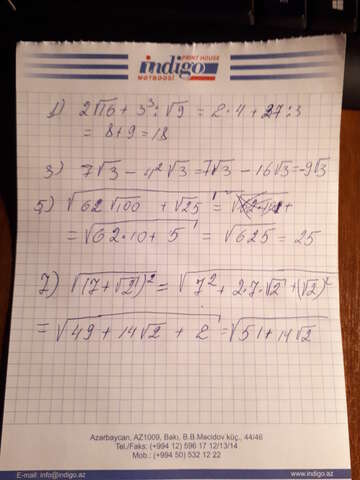 PRINT HOUSE
indigo
MƏTBƏƏSİ
1) 2√16 + 3³ : √9 = 2·4 + 27:3
= 8+9 = 18
3) 7√3 - 4²√3 = 7√3 - 16√3 = -9√3
5) √(62√100 + √25) =
= √(62·10 + 5) = √625 = 25
7) √((7+√2)²) = √(7² + 2·7·√2 + (√2)²
= √(49 + 14√2 + 2) = √(51 + 14√2
Azərbaycan, AZ1009, Bakı, B.B.Məcidov küç., 44/46
Tel./Faks: (+994 12) 596 17 12/13/14
Mob.: (+994 50) 532 12 22
E-mail: info@indigo.az www.indigo.az